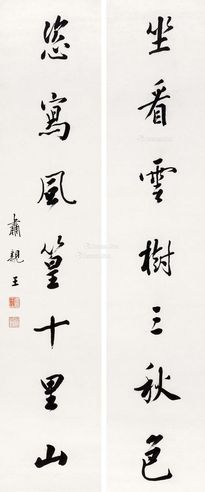 坐看雲樹三秋色
恣寫風篁十里山
肅親王